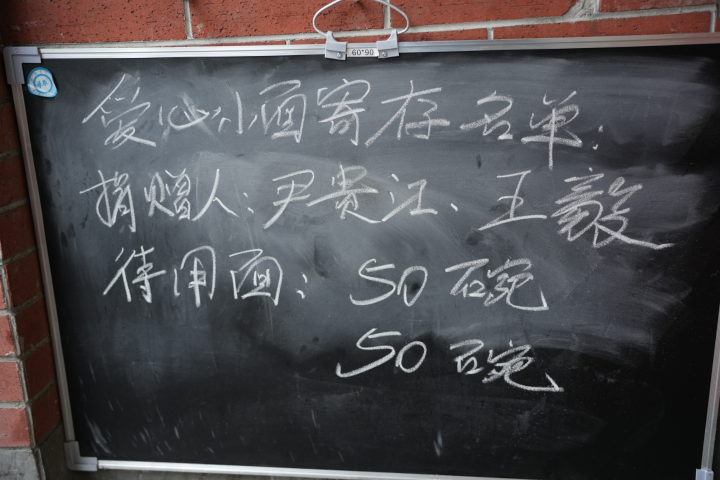 60*90
爱心小面寄存名单：
捐赠人：尹贵江、王毅
待用面：50碗
50碗